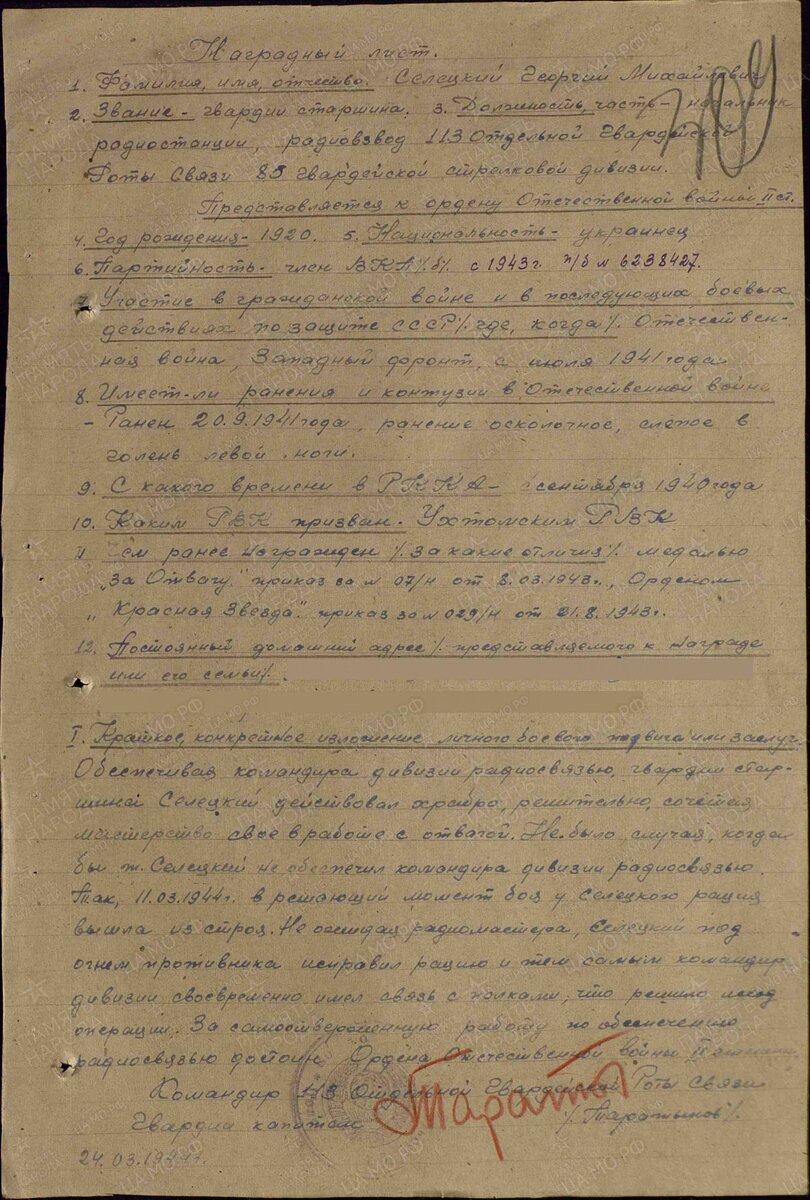 Наградный лист.
1. Фамилия, имя, отчество. Селецкий Георгий Михайлович
2. Звание - гвардии старшина. 3. Должность, часть - начальник
радиостанции, радиовзвод 113 Отдельной Гвардейской
Роты Связи 85 гвардейской стрелковой дивизии.
Представляется к ордену Отечественной войной II ст.
4. Год рождения - 1920. 5. Национальность - украинец
6. Партийность - член ВКП/б/. с 1943 г. п/б № 6238427.
7. Участие в гражданской войне и в последующих боевых
действиях по защите СССР /. где, когда /. Отечествен-
ная война, Западный фронт, с июля 1941 года
8. Имеет-ли ранения и контузии в Отечественной войне
- Ранен 20.9.1941 года, ранение осколочное, слепое в
голень левой ноги.
9. С какого времени в РККА - с сентября 1940 года
10. Каким РВК призван - Ухтомским РВК
11 Чем ранее награжден /. за какие отличия /. медалью
„За Отвагу." приказ за № 07/н от 8.03.1943 г., Орденом
„Красная Звезда". приказ за № 029/н от 21.8.1943 г.
12. Постоянный домашний адрес /. представляемого к награде
или его семьи /.
I. Краткое, конкретное изложение личного боевого подвига или заслуг.
Обеспечивая командира дивизии радиосвязью, гвардии стар-
шина Селецкий действовал храбро, решительно, сочетая
мастерство свое в работе с отвагой. Не было случая, когда
бы т. Селецкий не обеспечил командира дивизии радиосвязью.
Так, 11.03.1944 г. в решающий момент боя у Селецкого рация
вышла из строя. Не ожидая радиомастера, Селецкий под
огнем противника исправил рацию и тем самым командир
дивизии своевременно имел связь с полками, что решило исход
операции. За самоотверженную работу по обеспечению
радиосвязью достоин Ордена Отечественной войны II степени
Командир 113 Отдельной Гвардейской Роты Связи
Гвардии капитан
24.03.1944 г.